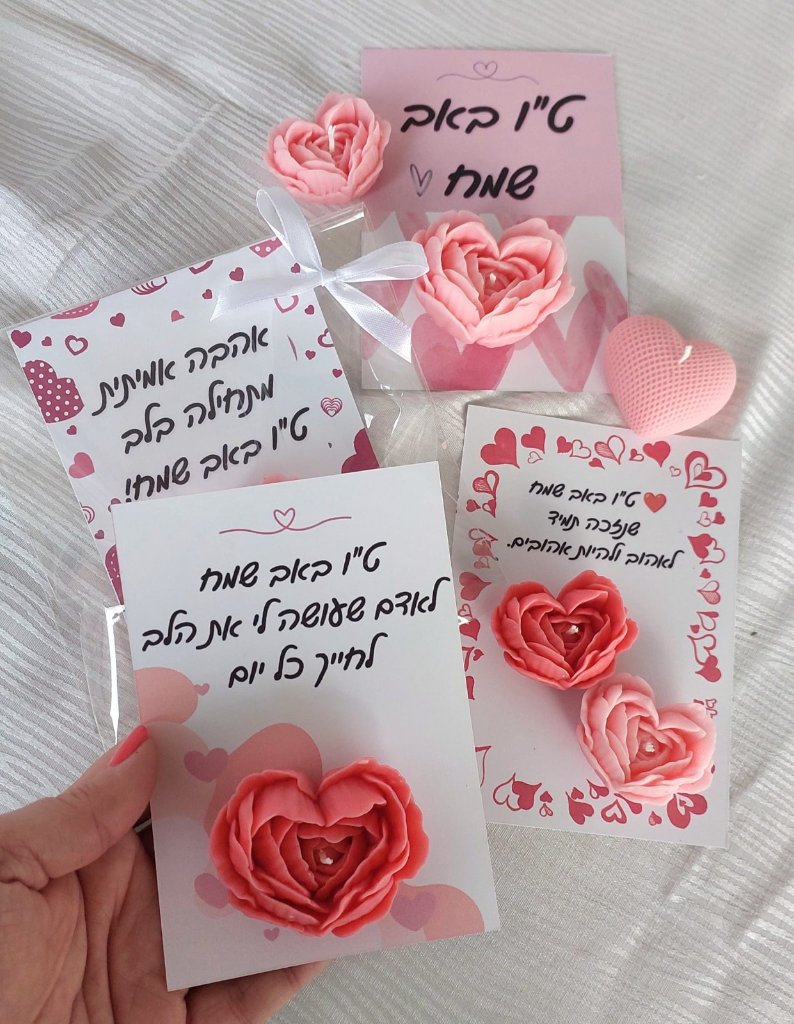 ט"ו באב
שמח
אהבה אמיתית
מתחילה בלב
ט"ו באב שמח!
ט"ו באב שמח
שנזכה תמיד
לאהוב ולהיות אהובים.
ט"ו באב שמח
לאדם שעושה לי את הלב
לחייך כל יום